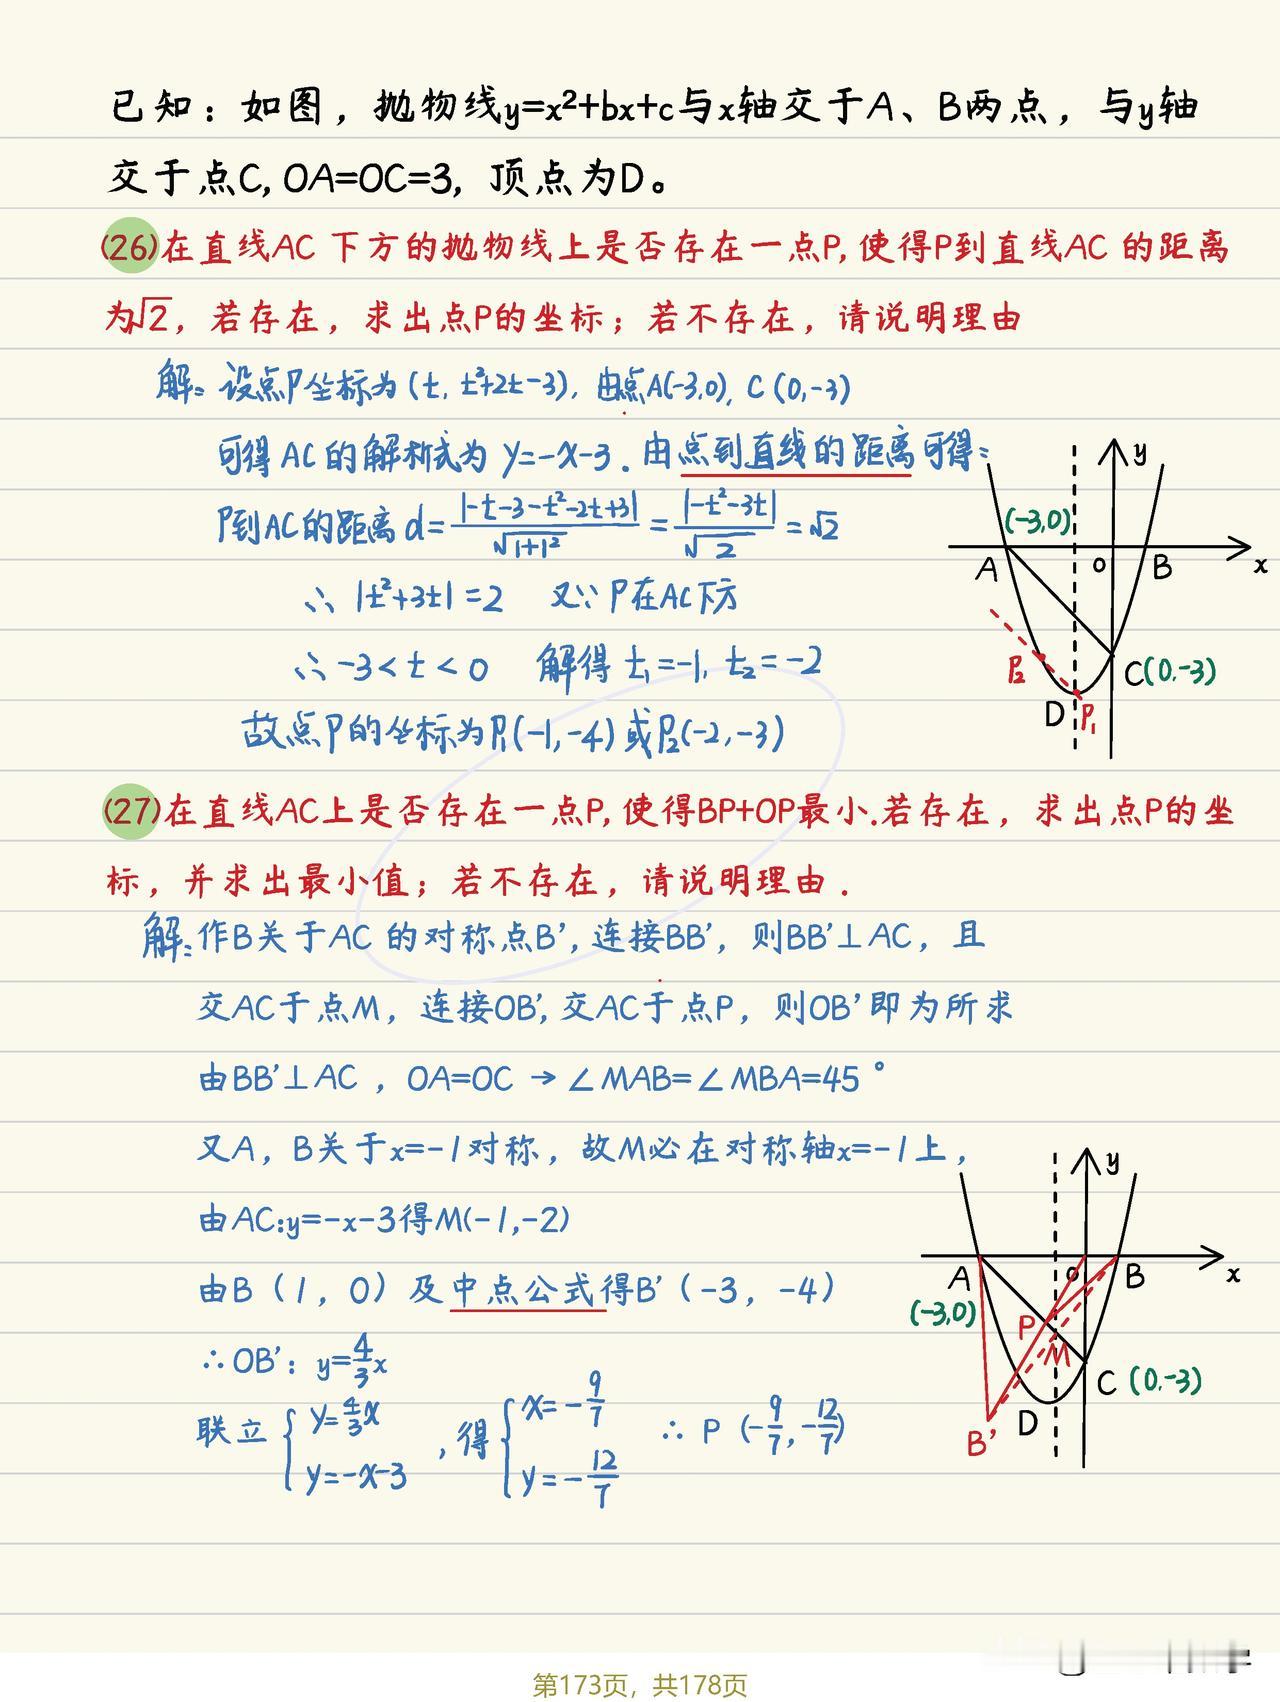 已知：如图，抛物线y=x²+bx+c与x轴交于A、B两点，与y轴
交于点C, OA=OC=3, 顶点为D。
(26)在直线AC下方的抛物线上是否存在一点P,使得P到直线AC的距离
为√2，若存在，求出点P的坐标；若不存在，请说明理由
解：设点P坐标为(t, t²+2t-3), 由点A(-3,0), C(0,-3)
可得AC的解析式为 y=-x-3. 由点到直线的距离可得：
P到AC的距离 d=|-t-3-t²-2t+3|/√(1+1²)=|-t²-3t|/√2=√2
∴ |t²+3t|=2 又∵P在AC下方
∴ -3<t<0 解得 t₁=-1, t₂=-2
故点P的坐标为P₁(-1,-4)或P₂(-2,-3)
y
(-3,0)
A
O
B
x
P₂
C(0,-3)
D
P₁
(27)在直线AC上是否存在一点P,使得BP+OP最小.若存在，求出点P的坐
标，并求出最小值；若不存在，请说明理由.
解：作B关于AC的对称点B′,连接BB′，则BB′⊥AC，且
交AC于点M，连接OB′,交AC于点P，则OB′即为所求
由BB′⊥AC，OA=OC→∠MAB=∠MBA=45°
又A，B关于x=-1对称，故M必在对称轴x=-1上，
由AC:y=-x-3得M(-1,-2)
由B（1，0）及中点公式得B′（-3，-4）
∴OB′：y=4/3x
联立{y=4/3x, y=-x-3，得{x=-9/7, y=-12/7 ∴P(-9/7,-12/7)
y
A
O
B
x
(-3,0)
P
M
C(0,-3)
D
B′
第173页，共178页